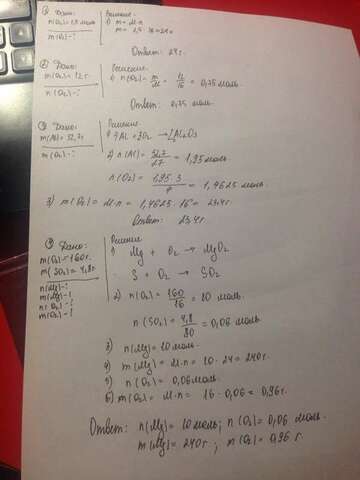 ① Дано:
n(O₂)=1,5 моль
m(O₂)-?
Решение
1) m = M·n
m = 1,5·16=24г
Ответ: 24г.
② Дано:
m(O₂)=12г.
n(O₂)-?
Решение
1) n(O₂) = m/M = 12/16 = 0,75 моль.
Ответ: 0,75 моль.
③ Дано:
m(Al)=52,7г
m(O₂)-?
Решение
1) 4Al + 3O₂ → 2Al₂O₃
2) n(Al) = 52,7/27 = 1,95 моль
n(O₂) = 1,95·3/4 = 1,4625 моль.
3) m(O₂) = M·n = 1,4625·16 = 23,4г.
Ответ: 23,4г.
④ Дано:
m(O₂)=160г.
m(SO₂)=4,8г.
n(Mg)-?
m(Mg)-?
n(O₂)-?
m(O₂)-?
Решение
1) Mg + O₂ → MgO₂
S + O₂ → SO₂
2) n(O₂) = 160/16 = 10 моль.
n(SO₂) = 4,8/80 = 0,06 моль
3) n(Mg)=10 моль.
4) m(Mg) = M·n = 10·24=240г.
5) n(O₂) = 0,06 моль.
6) m(O₂) = M·n = 16·0,06 = 0,96г.
Ответ: n(Mg)=10 моль; n(O₂)=0,06 моль.
m(Mg)=240г; m(O₂)=0,96г.